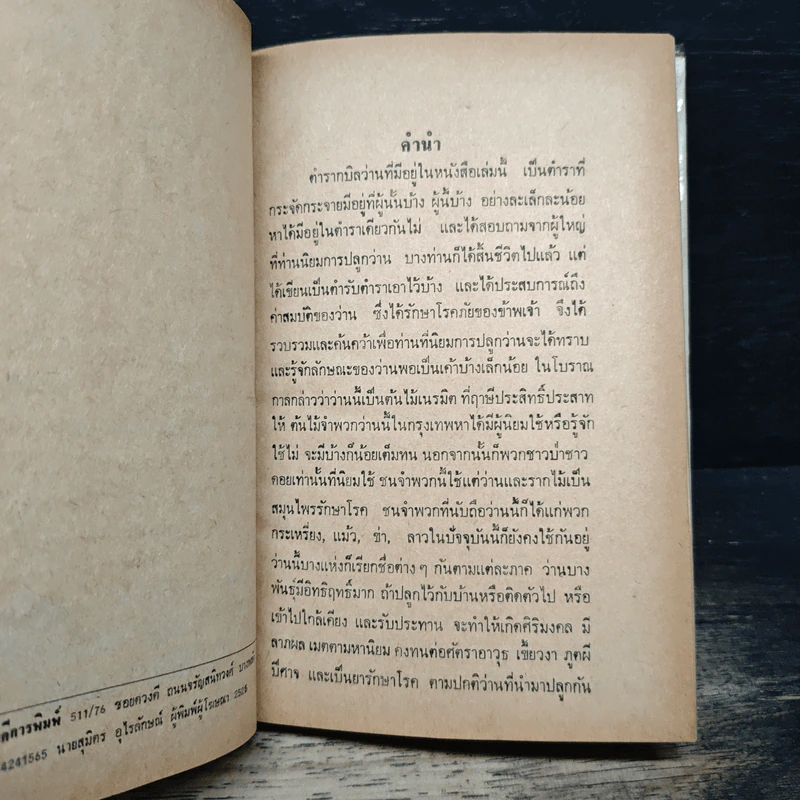 ดีการพิมพ์ 511/76 ซอยดวงดี ถนนจรัญสนิทวงศ์
4241565 นายสุมิตร อุไรลักษณ์ ผู้พิมพ์ผู้โฆษณา 2526
คำนำ
ตำรากบิลว่านที่มีอยู่ในหนังสือเล่มนี้ เป็นตำราที่
กระจัดกระจายมีอยู่ที่ผู้นั้นบ้าง ผู้นี้บ้าง อย่างละเล็กละน้อย
หาได้มีอยู่ในตำราเดียวกันไม่ และได้สอบถามจากผู้ใหญ่
ที่ท่านนิยมการปลูกว่าน บางท่านก็ได้สิ้นชีวิตไปแล้ว แต่
ได้เขียนเป็นตำรับตำราเอาไว้บ้าง และได้ประสบการณ์ถึง
ค่าสมบัติของว่าน ซึ่งได้รักษาโรคภัยของข้าพเจ้า จึงได้
รวบรวมและค้นคว้าเพื่อท่านที่นิยมการปลูกว่านจะได้ทราบ
และรู้จักลักษณะของว่านพอเป็นเค้าบ้างเล็กน้อย ในโบราณ
กาลกล่าวว่าว่านนี้เป็นต้นไม้เนรมิต ที่ฤาษีประสิทธิ์ประสาท
ให้ ต้นไม้จำพวกว่านนี้ในกรุงเทพหาได้มีผู้นิยมใช้หรือรู้จัก
ใช้ไม่ จะมีบ้างก็น้อยเต็มทน นอกจากนั้นก็พวกชาวป่าชาว
ดอยเท่านั้นที่นิยมใช้ ชนจำพวกนี้ใช้แต่ว่านและรากไม้เป็น
สมุนไพรรักษาโรค ชนจำพวกที่นับถือว่านนี้ก็ได้แก่พวก
กระเหรี่ยง, แม้ว, ข่า, ลาวในปัจจุบันนี้ก็ยังคงใช้กันอยู่
ว่านนี้บางแห่งก็เรียกชื่อต่าง ๆ กันตามแต่ละภาค ว่านบาง
พันธุ์มีอิทธิฤทธิ์มาก ถ้าปลูกไว้กับบ้านหรือติดตัวไป หรือ
เข้าไปใกล้เคียง และรับประทาน จะทำให้เกิดศิริมงคล มี
ลาภผล เมตตามหานิยม คงทนต่อศัตราอาวุธ เขี้ยวงา ภูตผี
ปีศาจ และเป็นยารักษาโรค ตามปกติว่านที่นำมาปลูกกัน